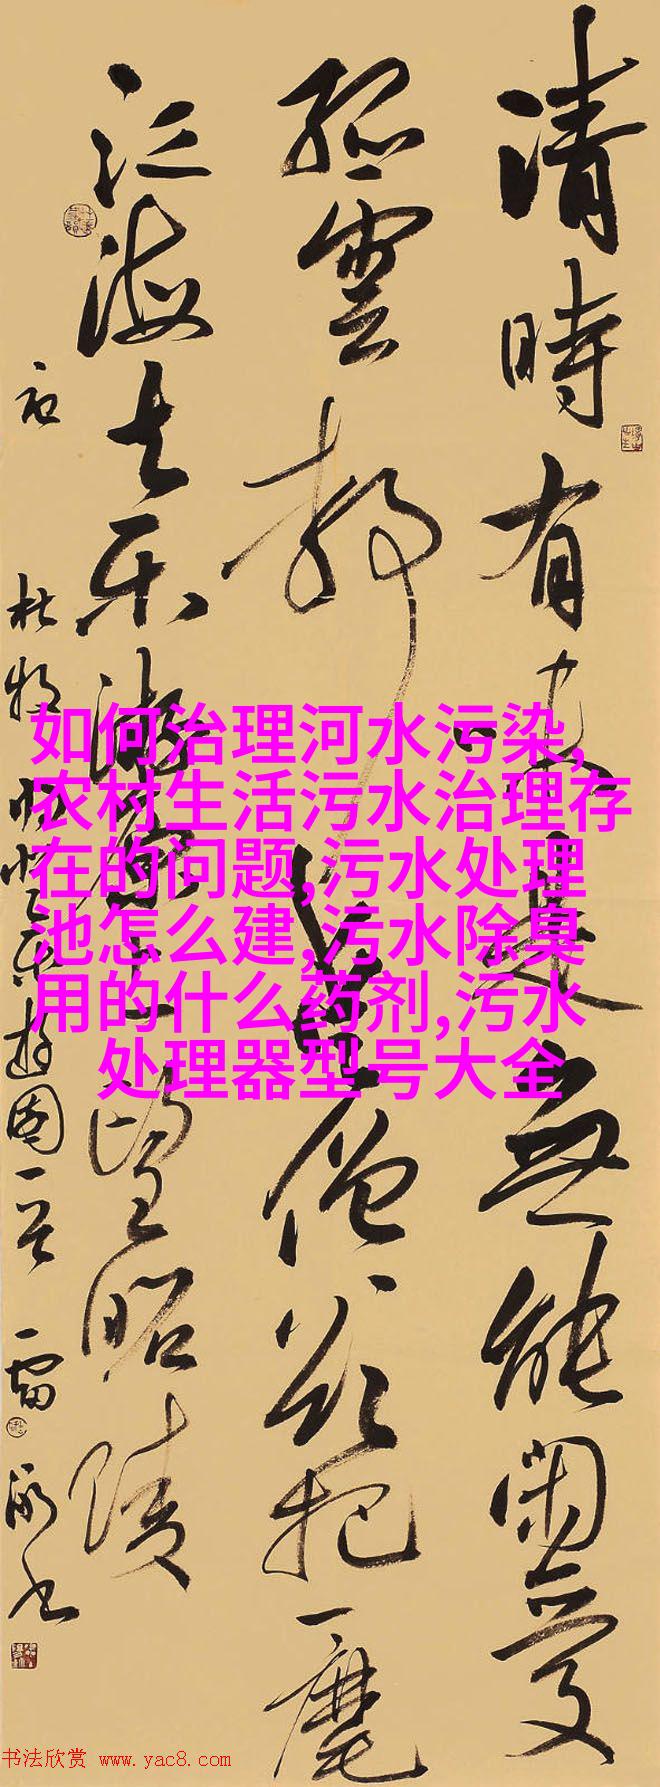 清時有味是無能閑愛
孤雲靜愛僧欲把一麾
江海去樂游原上望昭陵
右
杜牧將登樂游原一首
如何治理河水污染,
农村生活污水治理存
在的问题,污水处理
池怎么建,污水除臭
用的什么药剂,污水
处理器型号大全
书法欣赏 www.yac8.com